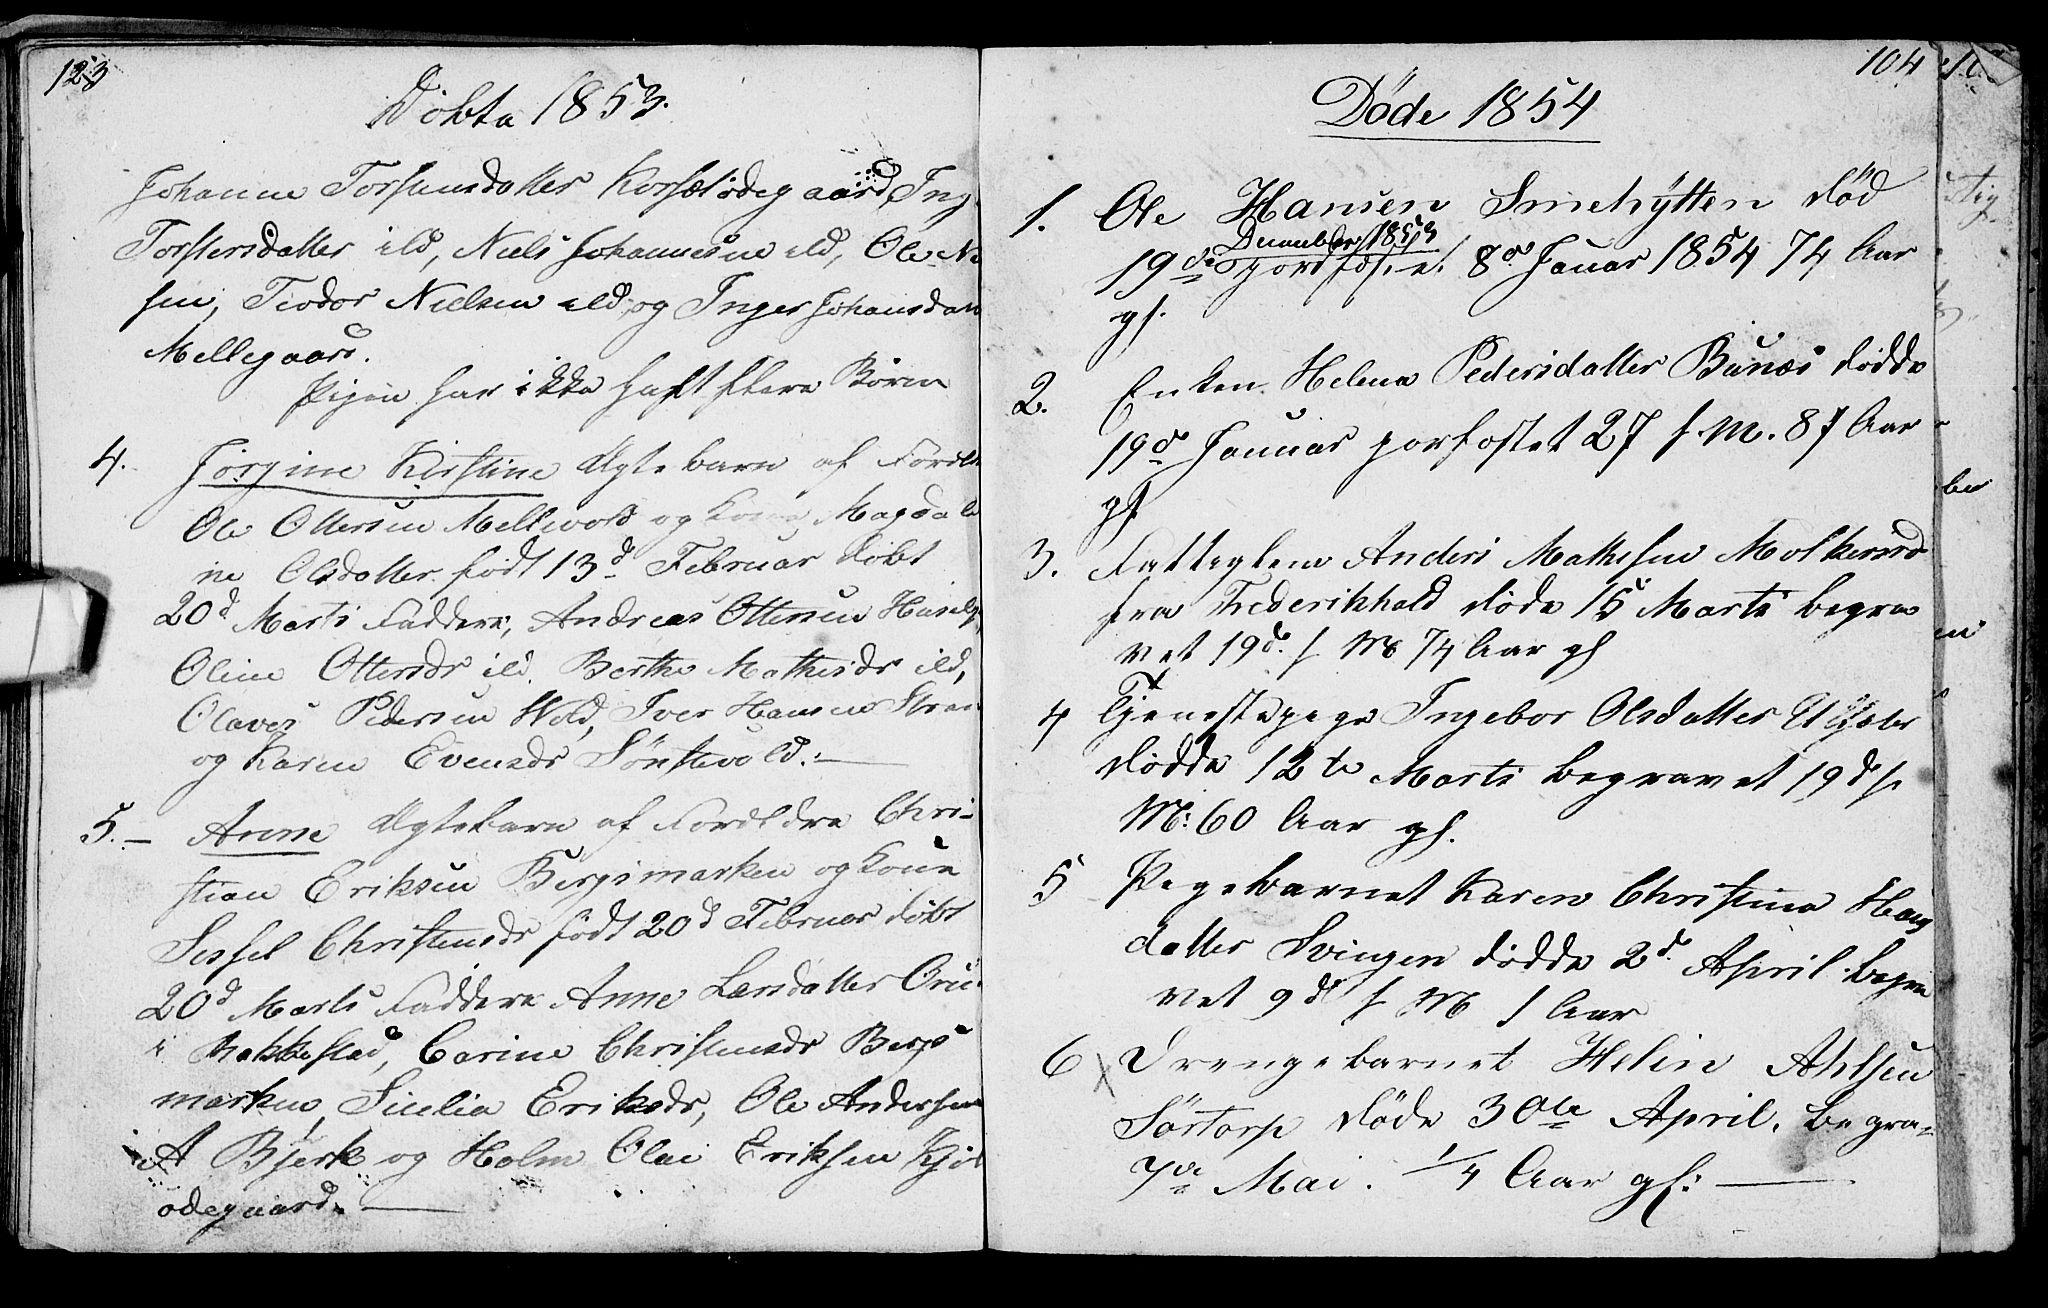 123
Döbte 1853.
Johanne Torstensdatter Korsetödegaard, Ing
Torstersdatter ibd, Niels Johannesen ibd, Ole Ni
sen, Teodor Nielsen ibd, og Inger Johansdat
Mellegaard.
Pigen har ikke haft flere Börn
4. Jörgine Kirstine Ægtebarn af Foreld
Ole Ottersen Mellwold og Kone Magdale
ne Olsdatter födt 13d Februar döbt
20d Marts Faddere, Andreas Ottersen
Oline Ottersdr ibd, Berthe Mathisdr ibd,
Olaves Pedersen Wold, Iver Hansen
og Karen Evensdr Sönstevold.
5. Anne Ægtebarn af Forældre Chri-
stian Eriksen Bergsmarken og Kone
Sessel Christensdr födt 20d Februar döbt
20d Marts Faddere Anne Larsdatter
i Rakkestad, Carine Christensdr Bergs
marken, Sicelia Eriksdr, Ole Andersen
A Bjerk og Holm Olai Eriksen
ödegaard.
104
Døde 1854
1. Ole Hansen Smehytten død
December 1853
19de jordfæstet 8de Januar 1854 74 Aar
gl.
2. Enken Helene Pedersdatter Bunæs dödde
19de Januar jordfæstet 27 s. M. 87 Aar
gl
3. Fattiglem Anders Mathesen
fra Frederikhald döde 15 Marts begra
vet 19d. s M 74 Aar gl
4 Tjenestepige Ingebor Olsdatter
dödde 12te Marts begravet 19d s.
M: 60 Aar gl.
5 Pigebarnet Karen Christine Hans
datter Svingen dödde 2d. April begra
vet 9d s M 1 Aar
6 x Drengebarnet Helin
Sörtorp döde 30te April, begra-
7de Mai. 1/4 Aar gl: